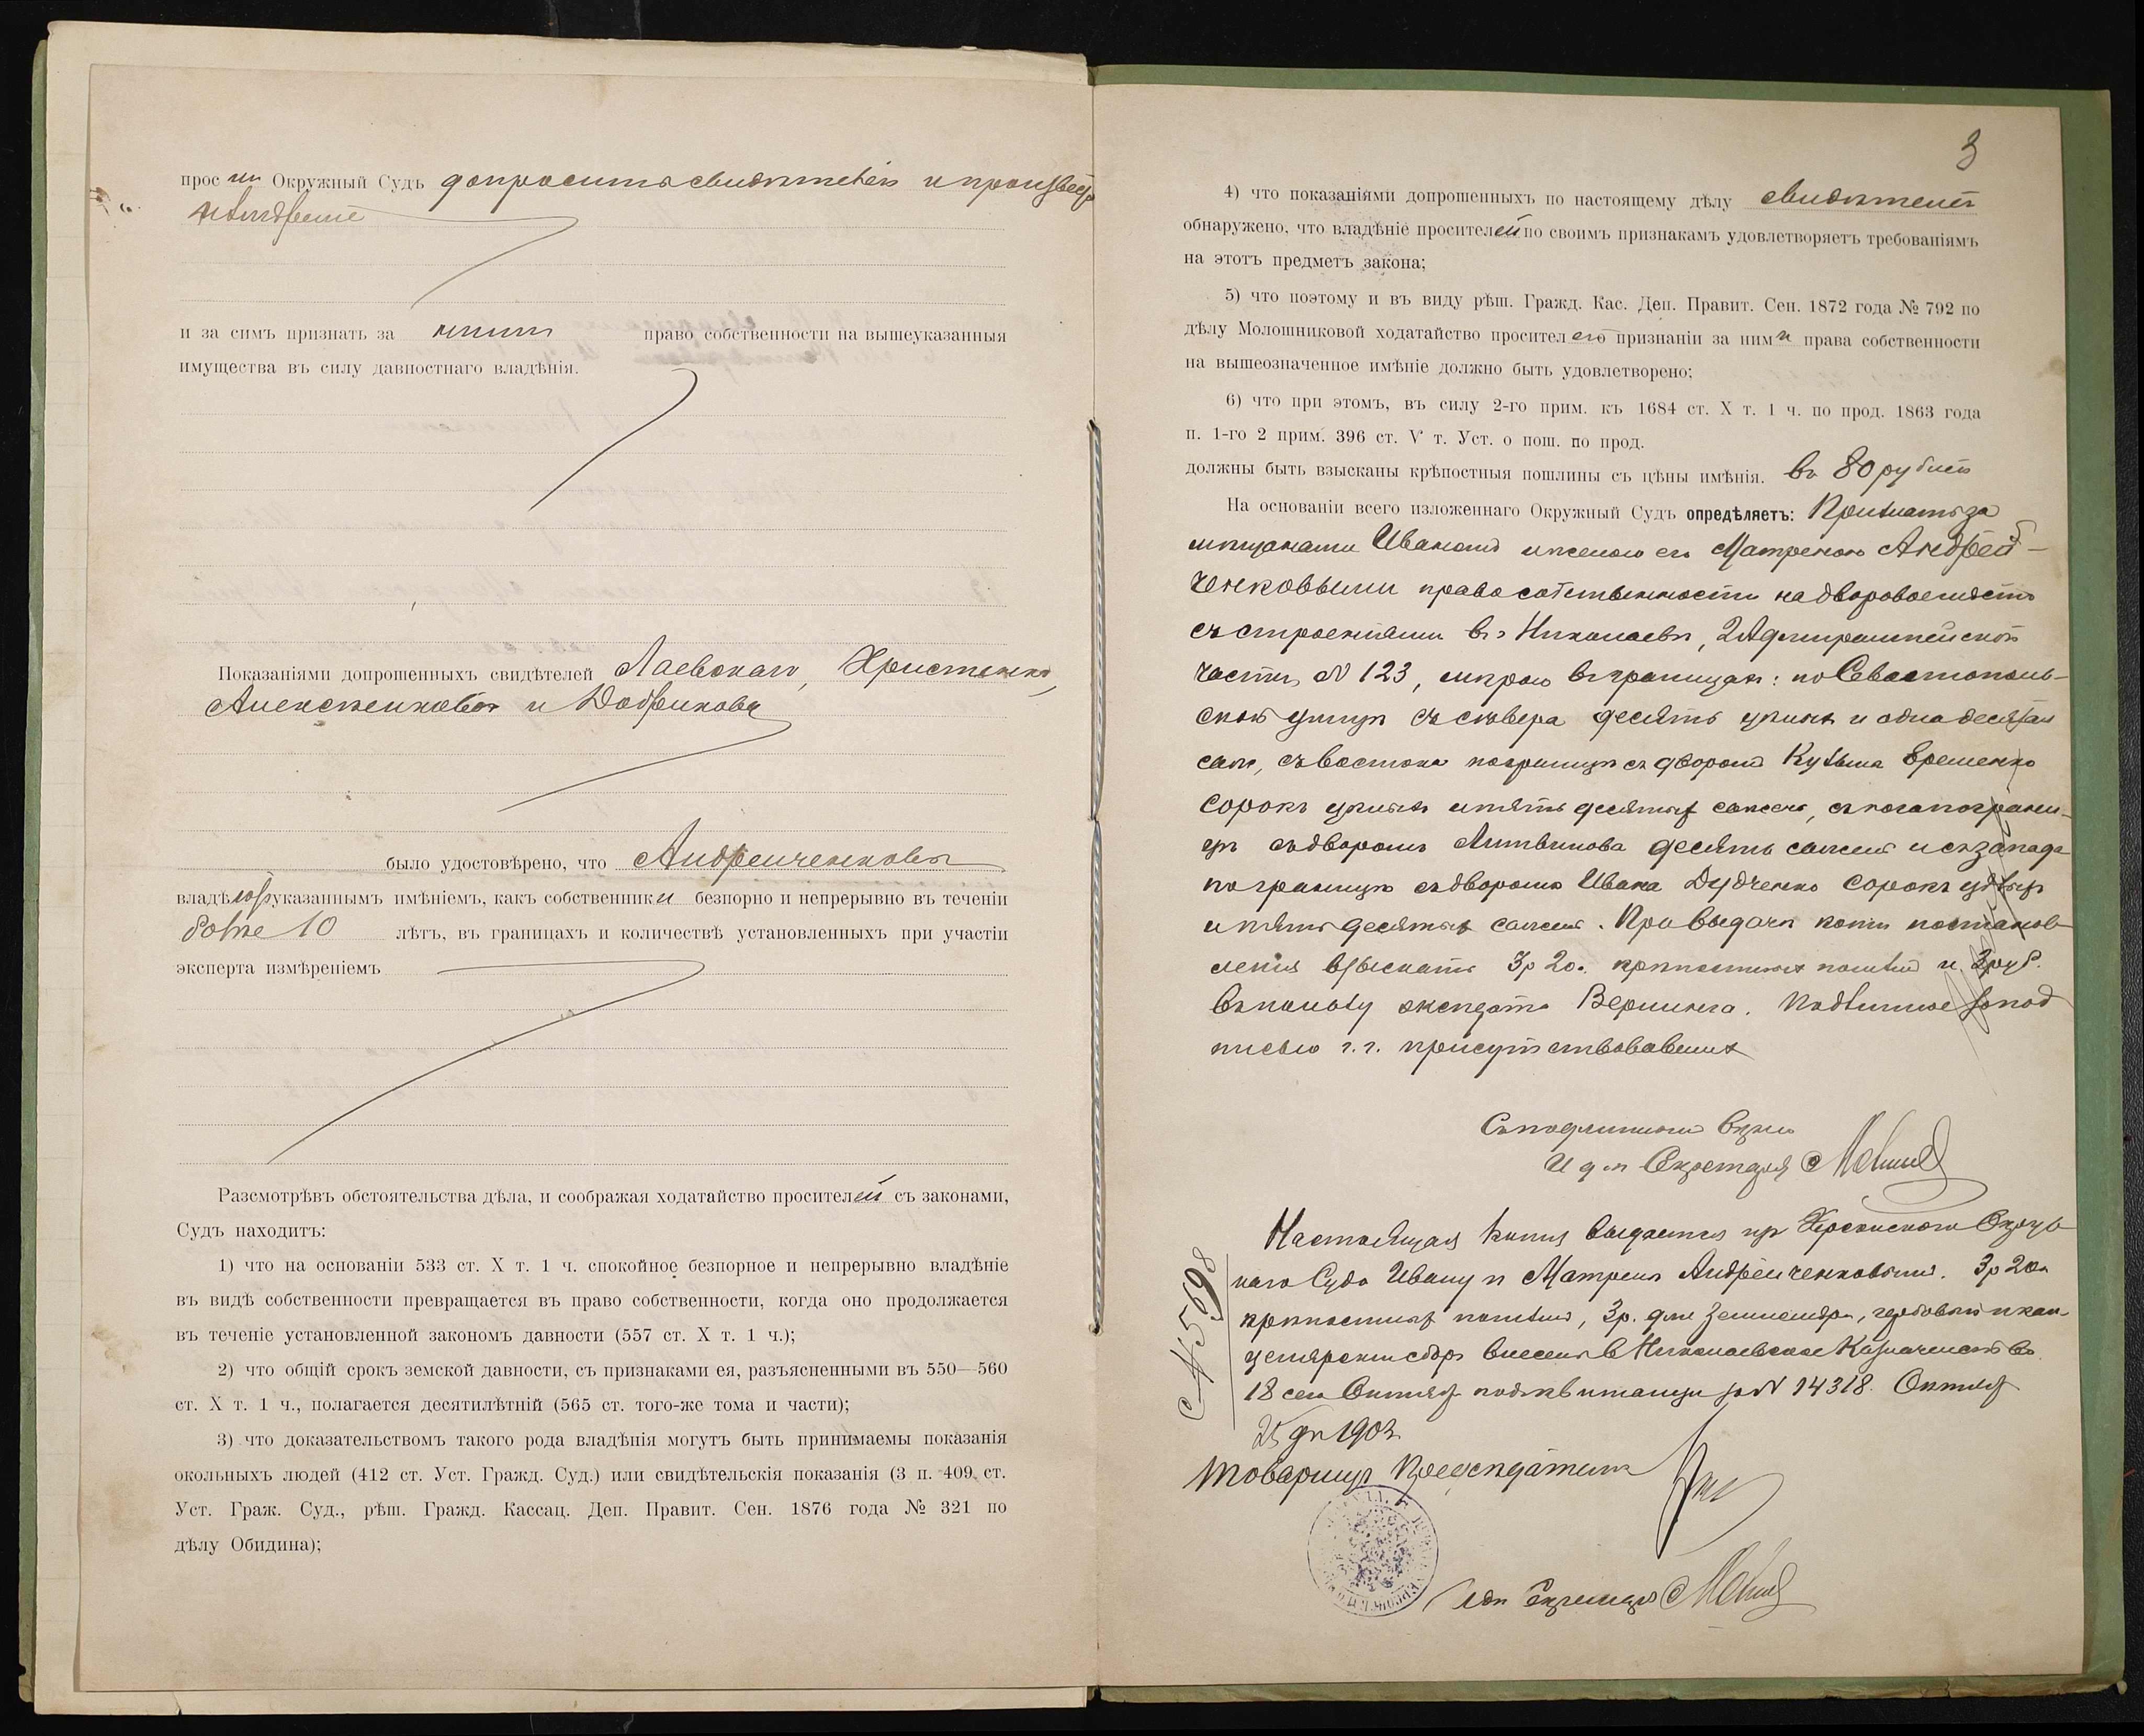 просили Окружный Судъ допросить свидѣтелей и произвести
измѣреніе
и за симъ признать за ними право собственности на вышеуказанныя
имущества въ силу давностнаго владѣнія.
Показаніями допрошенныхъ свидѣтелей Лаевскаго, Христенко,
и
было удостовѣрено, что Андрейченковы
владѣютъ указаннымъ имѣніемъ, какъ собственники безпорно и непрерывно въ теченіи
болѣе 10 лѣтъ, въ границахъ и количествѣ установленныхъ при участіи
эксперта измѣреніемъ
Разсмотрѣвъ обстоятельства дѣла, и соображая ходатайство просителей съ законами,
Судъ находитъ:
1) что на основаніи 533 ст. X т. 1 ч. спокойное безпорное и непрерывно владѣніе
въ видѣ собственности превращается въ право собственности, когда оно продолжается
въ теченіе установленной закономъ давности (557 ст. X т. 1 ч.);
2) что общій срокъ земской давности, съ признаками ея, разъясненными въ 550—560
ст. X т. 1 ч., полагается десятилѣтній (565 ст. того-же тома и части);
3) что доказательствомъ такого рода владѣнія могутъ быть принимаемы показанія
окольныхъ людей (412 ст. Уст. Гражд. Суд.) или свидѣтельскія показанія (3 п. 409 ст.
Уст. Граж. Суд., рѣш. Гражд. Кассац. Деп. Правит. Сен. 1876 года № 321 по
дѣлу Обидина);
3
4) что показаніями допрошенныхъ по настоящему дѣлу свидѣтелей
обнаружено, что владѣніе просителей по своимъ признакамъ удовлетворяетъ требованіямъ
на этотъ предметъ закона;
5) что поэтому и въ виду рѣш. Гражд. Кас. Деп. Правит. Сен. 1872 года № 792 по
дѣлу Молошниковой ходатайство просител о признаніи за ними права собственности
на вышеозначенное имѣніе должно быть удовлетворено;
6) что при этомъ, въ силу 2-го прим. къ 1684 ст. X т. 1 ч. по прод. 1863 года
п. 1-го 2 прим. 396 ст. V т. Уст. о пош. по прод.
должны быть взысканы крѣпостныя пошлины съ цѣны имѣнія. въ 80 рублей
На основаніи всего изложеннаго Окружный Судъ опредѣляетъ: Признать за
мѣщанами Иваномъ и женою его Матреною Андрей-
ченковыми право собственности на дворовое мѣсто
съ строеніями въ г. Николаевѣ, 2 Адмиралтейской
части, № 123, мѣрою въ границахъ: по Севастополь-
ской улицѣ съ сѣвера десять цѣлыхъ и одна десятая
саж., съ востока по границѣ съ дворомъ Кузьма Временко
сорокъ цѣлыхъ и пять десятыхъ сажень, съ юга по грани-
цѣ съ дворомъ Литвинова десять сажень и съ запада
по границѣ съ дворомъ Ивана Дудченко сорокъ цѣлыхъ
и пять десятыхъ сажень. При выдачѣ копіи постанов-
ленія взыскать 3 р 20 к. крѣпостныхъ пошлинъ и 3 руб.
въ пользу эксперта. Подлинное за под
писью г.г. присутствовавшихъ
Съ подлиннымъ вѣрно
И д. п Секретаря
Настоящая копія выдается изъ Херсонскаго Окруж-
наго Суда Ивану и Матренѣ Андрейченковымъ. 3 р 20 к
крѣпостныхъ пошлинъ, 3 р. для землемѣра, гербовый и кан-
целярскій сборъ внесены в Николаевское Казначейство
18 сего Октября подъ квитанціи за № 14318. Октября
25 дн 1903
Товарищъ Предсѣдателя
№ 5598
Секретаря